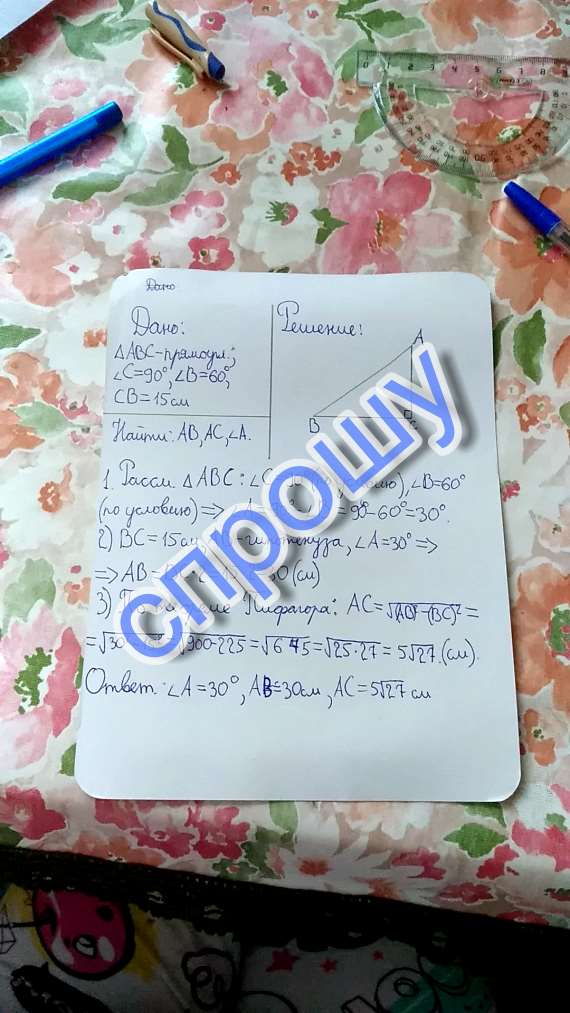 Дано
Дано:
△ABC-прямоуг.;
∠C=90°, ∠B=60°,
CB=15см
Найти: AB, AC, ∠A.
Решение:
A
B
C
спрошу
1. Рассм. △ABC: ∠C условию), ∠B=60°
(по условию) => = 90°-60°=30°.
2) BC=15см, гипотенуза, ∠A=30° =>
=> AB 30(см)
3) По Пифагора: AC=√(AB)²-(BC)² =
=√30 √900-225=√675=√25·27=5√27.(см).
Ответ: ∠A=30°, AB=30см, AC=5√27 см